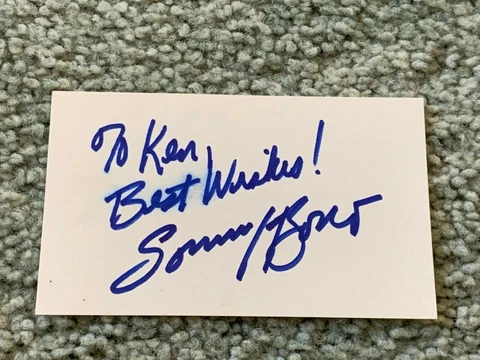 To Ken
Best Wishes!
Sonny Bono